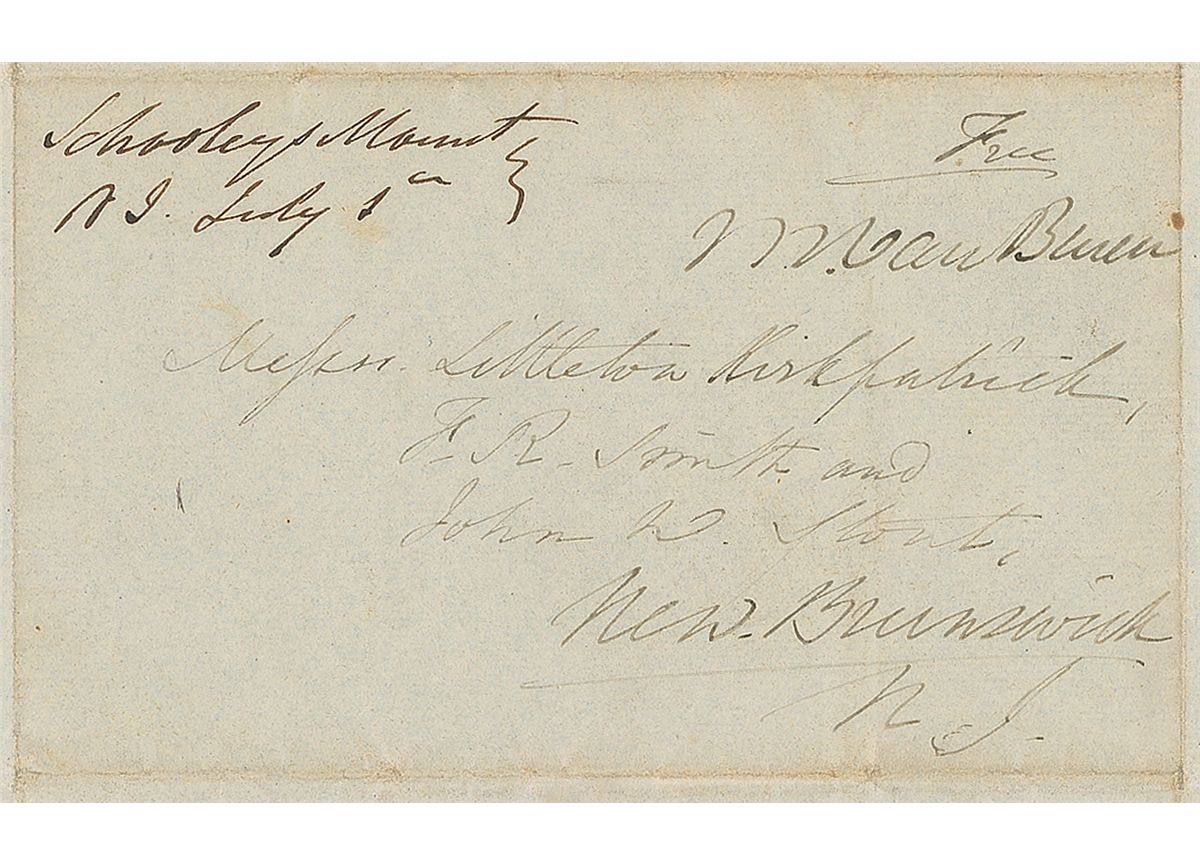 Schooleys Mount
N J. July 1st
Free
M. Van Buren
Messrs. Littleton Kirkpatrick,
F. R. Smith and
John W. Stout,
New Brunswick
N J.